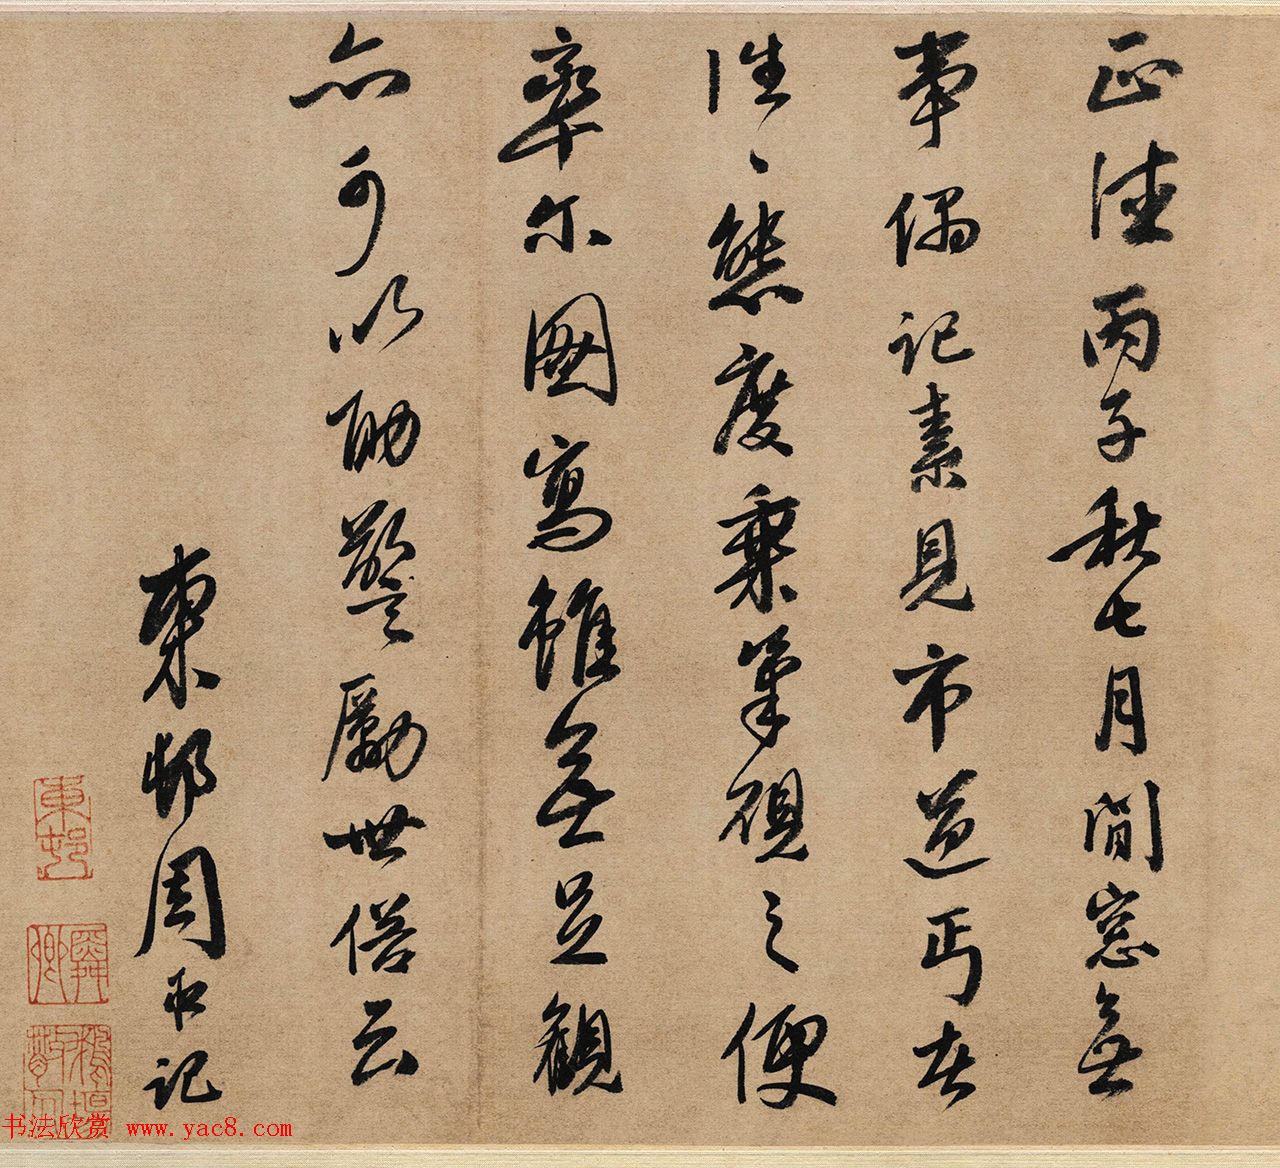 正德丙子秋七月閒窓無
事偶記素見市道丐者
往〻態度乘筆硯之便
率尔圖寫雖無足觀
亦可以助警勵世俗云
東邨周臣記
東邨
舜卿
书法欣赏 www.yac8.com